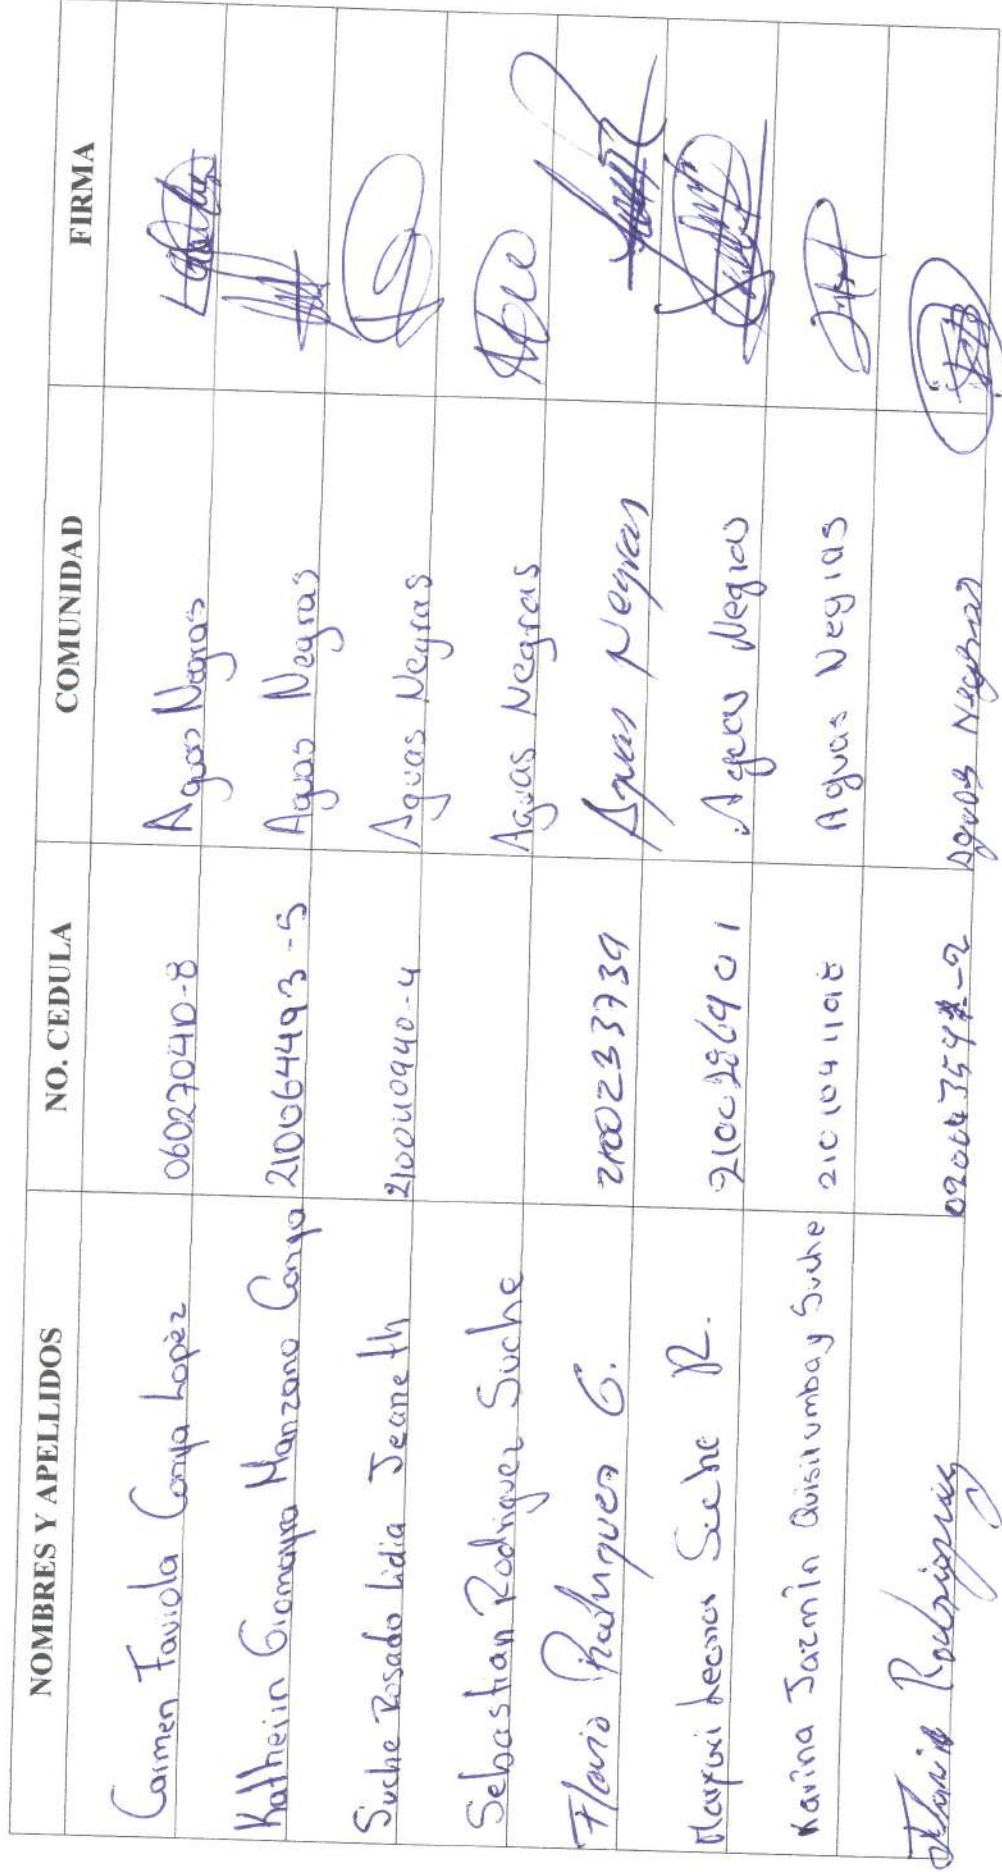 NOMBRES Y APELLIDOS NO. CEDULA COMUNIDAD FIRMA
Carmen Faviola Conya Lopèz 060270410-8 Aguas Negras
Katherin Giomayra Manzano Conya 210064493-5 Aguas Negras
Suche Rosado Lidia Jeaneth 210040940-4 Aguas Negras
Sebastian Rodriguez Suche Aguas Negras
Flavio Rodriguez G. 2100233739 Aguas Negras
Suche R. Aguas Negras
Karina Jazmín Quisilumbay Suche 2101041198 Aguas Negras
Rodriguez Aguas Negras